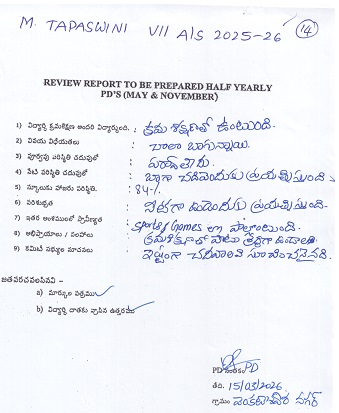 M. TAPASWINI VII A/S 2025-26 (14)
REVIEW REPORT TO BE PREPARED HALF YEARLY
PD'S (MAY & NOVEMBER)
1) విద్యార్థి క్రమశిక్షణ అందరి విద్యార్థులందు. : క్రమ శిక్షణతో ఉంటుంది.
2) వినయ విధేయతలు : చాలా బాగున్నాయి.
3) పూర్వపు పరిస్థితి చదువులో :
4) నేటి పరిస్థితి చదువులో : బాగా చదివెందుకు ప్రయత్నిస్తుంది
5) స్కూలుకు హాజరు పరిస్థితి. : 84%
6) పరిశుభ్రత : నీట్‌గా ఉండెందుకు ప్రయత్నిస్తుంది.
7) ఇతర అంశములలో ప్రావీణ్యత : Sports/Games లా పాల్గొంటుంది.
8) అభిప్రాయాలు / సలహాలు : క్రమశిక్షణతో పాటు శ్రద్ధగా ఉండాలి
9) కమిటీ సభ్యుల సూచనలు : చదవాలని సూచించనైనది.
జతపరచవలసినవి -
a) మార్కుల పత్రము
b) విద్యార్థి దాతకు వ్రాసిన ఉత్తరము
PD సంతకం PD
తేది. 15/03/2026
గ్రామం వెంకటేశ్వర నగర్